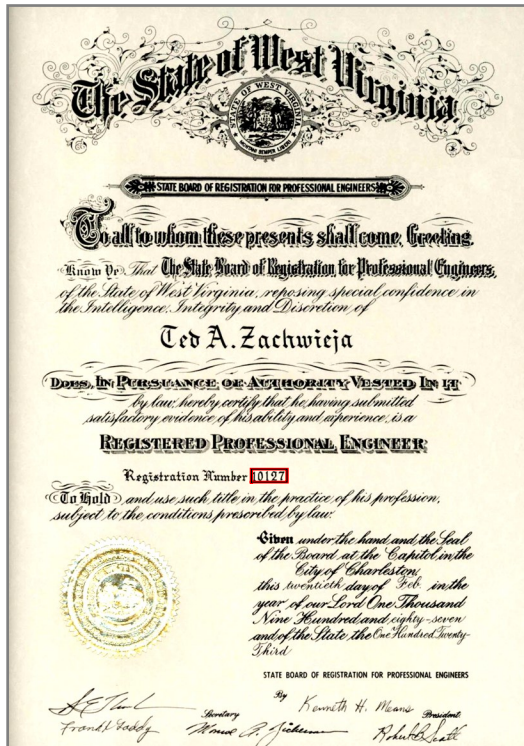 The State of West Virginia
STATE OF WEST VIRGINIA
MONTANI SEMPER LIBERI
STATE BOARD OF REGISTRATION FOR PROFESSIONAL ENGINEERS
To all to whom these presents shall come, Greeting.
Know Ye, That The State Board of Registration for Professional Engineers,
of the State of West Virginia, reposing special confidence in
the Intelligence, Integrity and Discretion of
Ted A. Zachwieja
DOES, IN PURSUANCE OF AUTHORITY VESTED IN IT
by law, hereby certify that he, having submitted
satisfactory evidence of his ability and experience, is a
REGISTERED PROFESSIONAL ENGINEER
Registration Number 10127
To Hold, and use such title in the practice of his profession,
subject to the conditions prescribed by law.
Given under the hand and the Seal
of the Board at the Capitol in the
City of Charleston;
this twentieth day of Feb. in the
year of our Lord One Thousand
Nine Hundred and eighty-seven
and of the State the One Hundred Twenty-
Third
STATE BOARD OF REGISTRATION FOR PROFESSIONAL ENGINEERS
By Kenneth H. Means President
Secretary
Frank Gaddy
Robert B. Scott